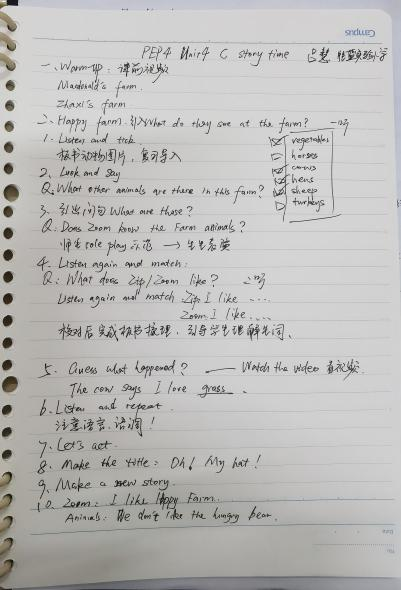 Campus
PEP4 Unit4 C story time 吕慧
一、Warm-up: 课前视频
Macdonald's farm.
Zhaxi's farm
二、Happy farm. 引入What do they see at the farm? 一听
1. Listen and tick.
板书动物图片，复习导入
vegetables
horses
cows
hens
sheep
turkeys
2. Look and say
Q: What other animals are there in this farm?
3. 引出问句 What are those?
Q: Does Zoom know the farm animals?
师生role play 示范 → 生生表演
4. Listen again and match:
Q: What does Zip/Zoom like? 二听
Listen again and match Zip: I like ....
Zoom: I like....
核对后完成板书梳理，引导学生理解生词、
5. Guess what happened? —— Watch the video 看视频
The cow says I love grass.
6. Listen and repeat.
注意语音、语调!
7. Let's act.
8. Make the title: Oh! My hat!
9. Make a new story.
10. Zoom: I like Happy Farm.
Animals: We don't like the hungry bear.